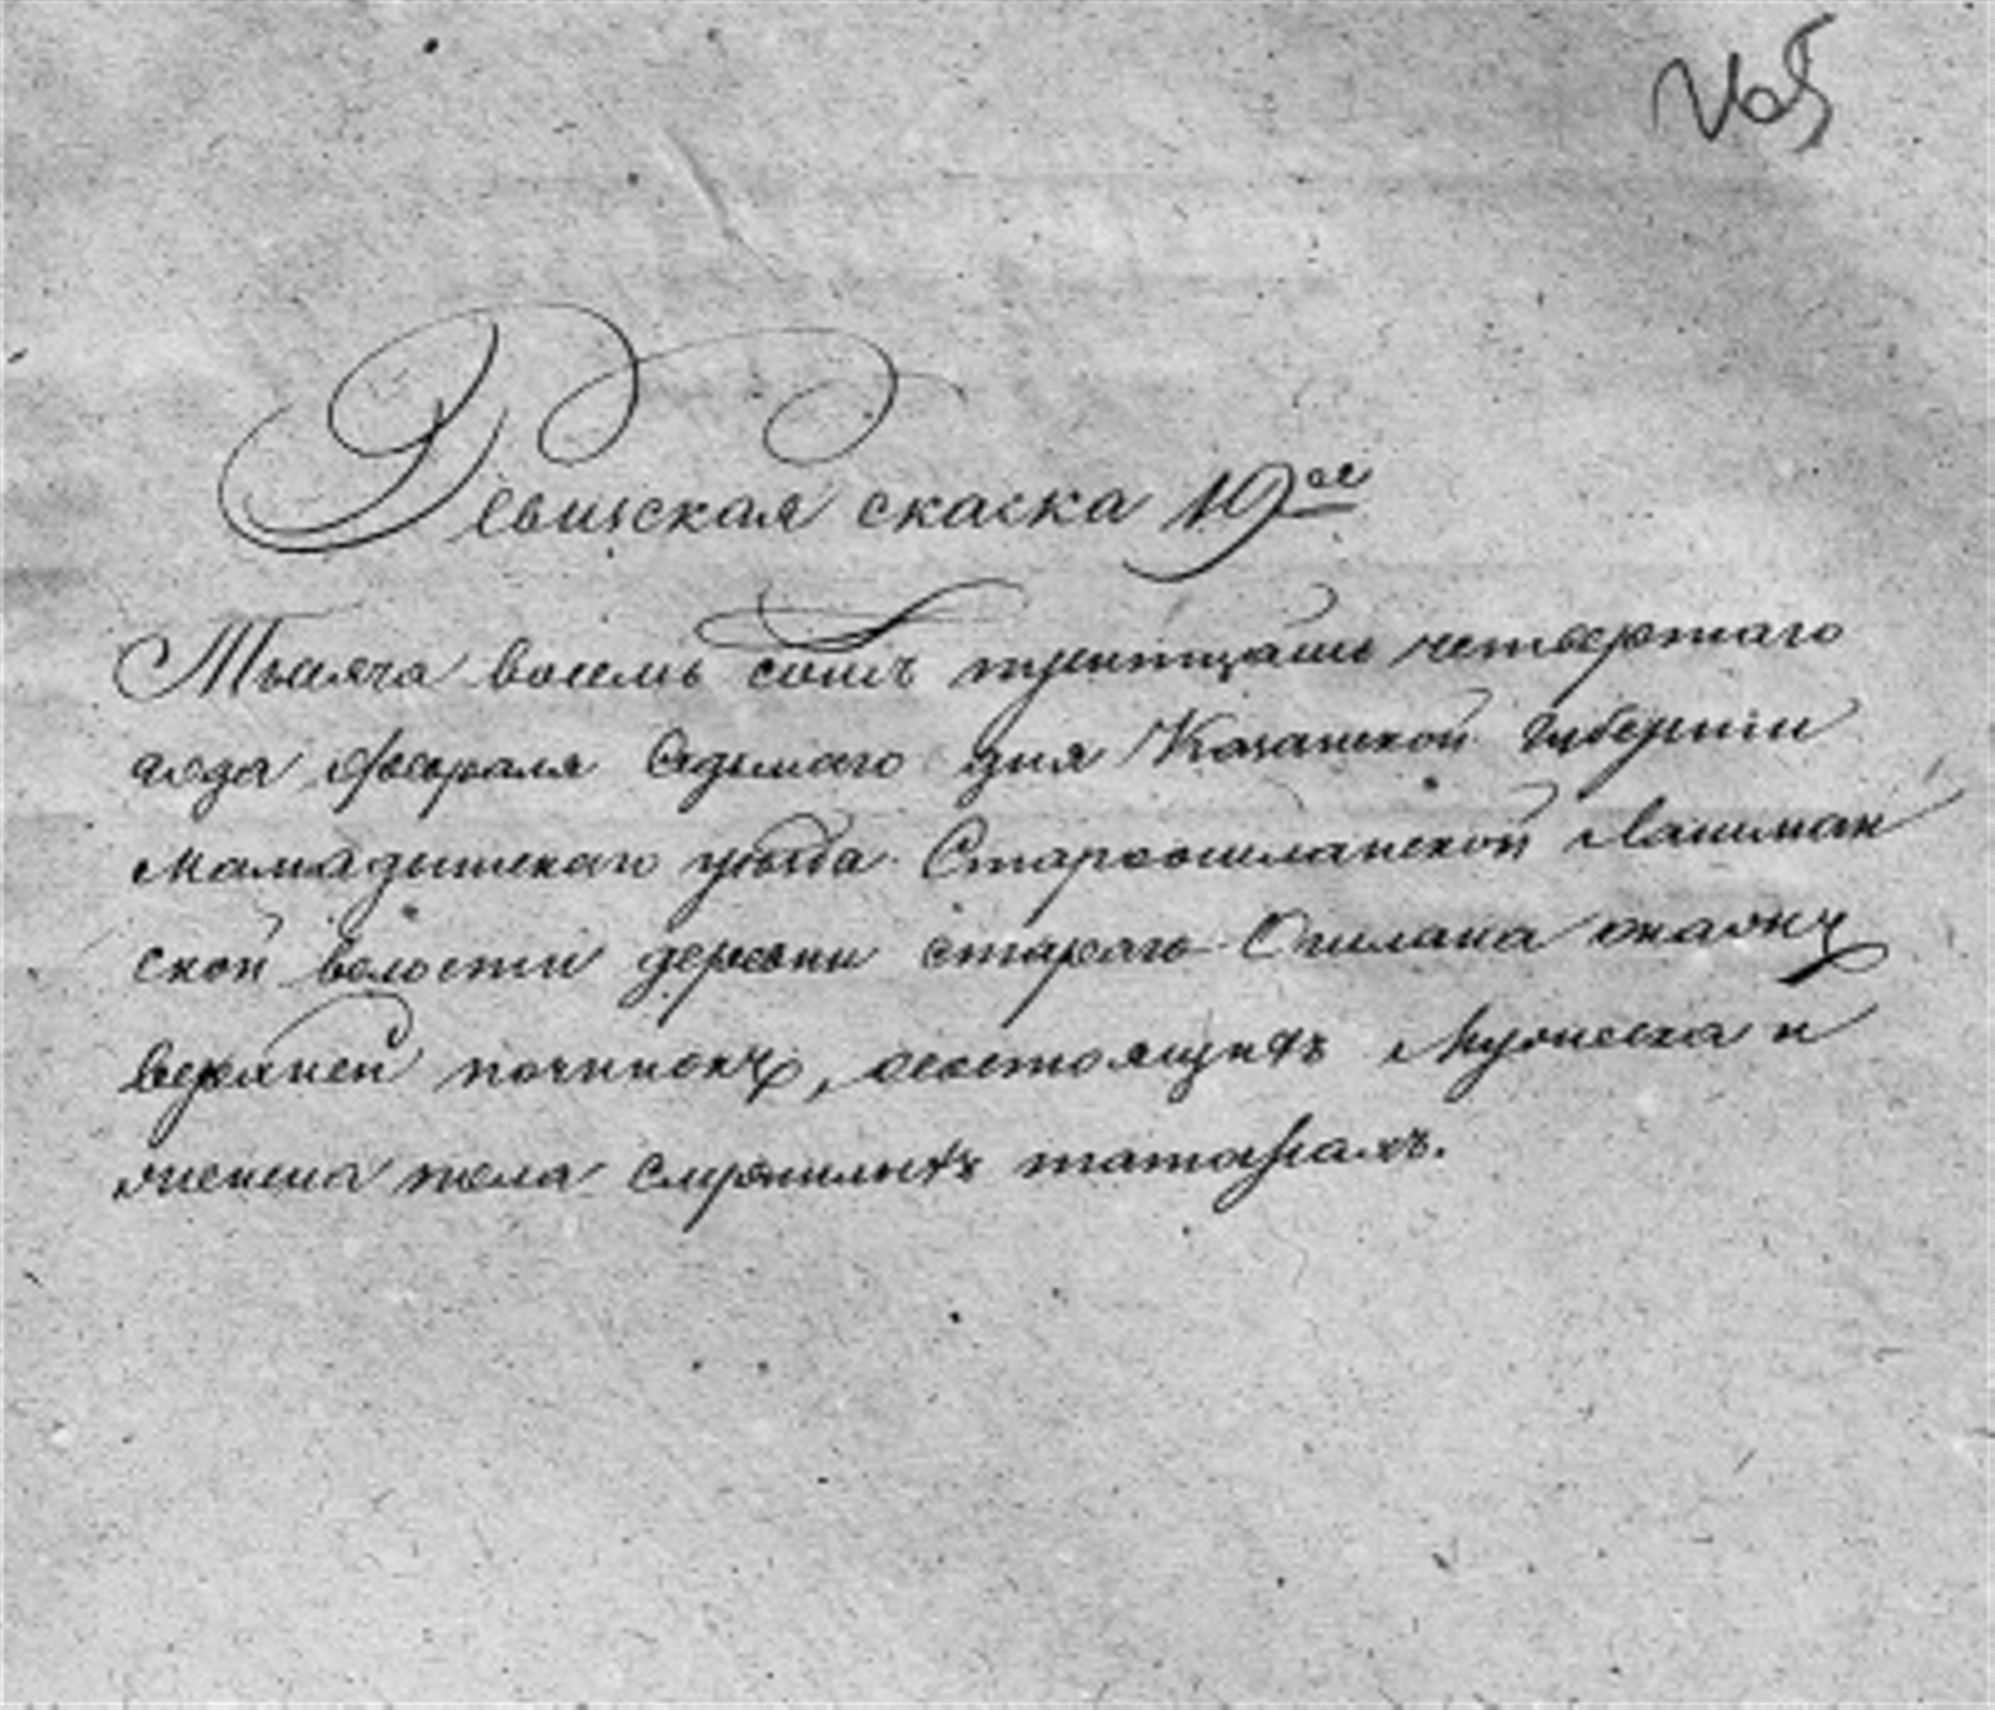 Ревижская скаска 19ое
Тысяча восемь сотъ тритцать четвертаго
года февраля Седьмаго дня Казанской Губернiи
Мамадышскаго уезда Староошланской Лашман
ской волости деревни стараго Ошлана
верхней починокъ, осостоящихъ Мужеска и
женска пола татарахъ.